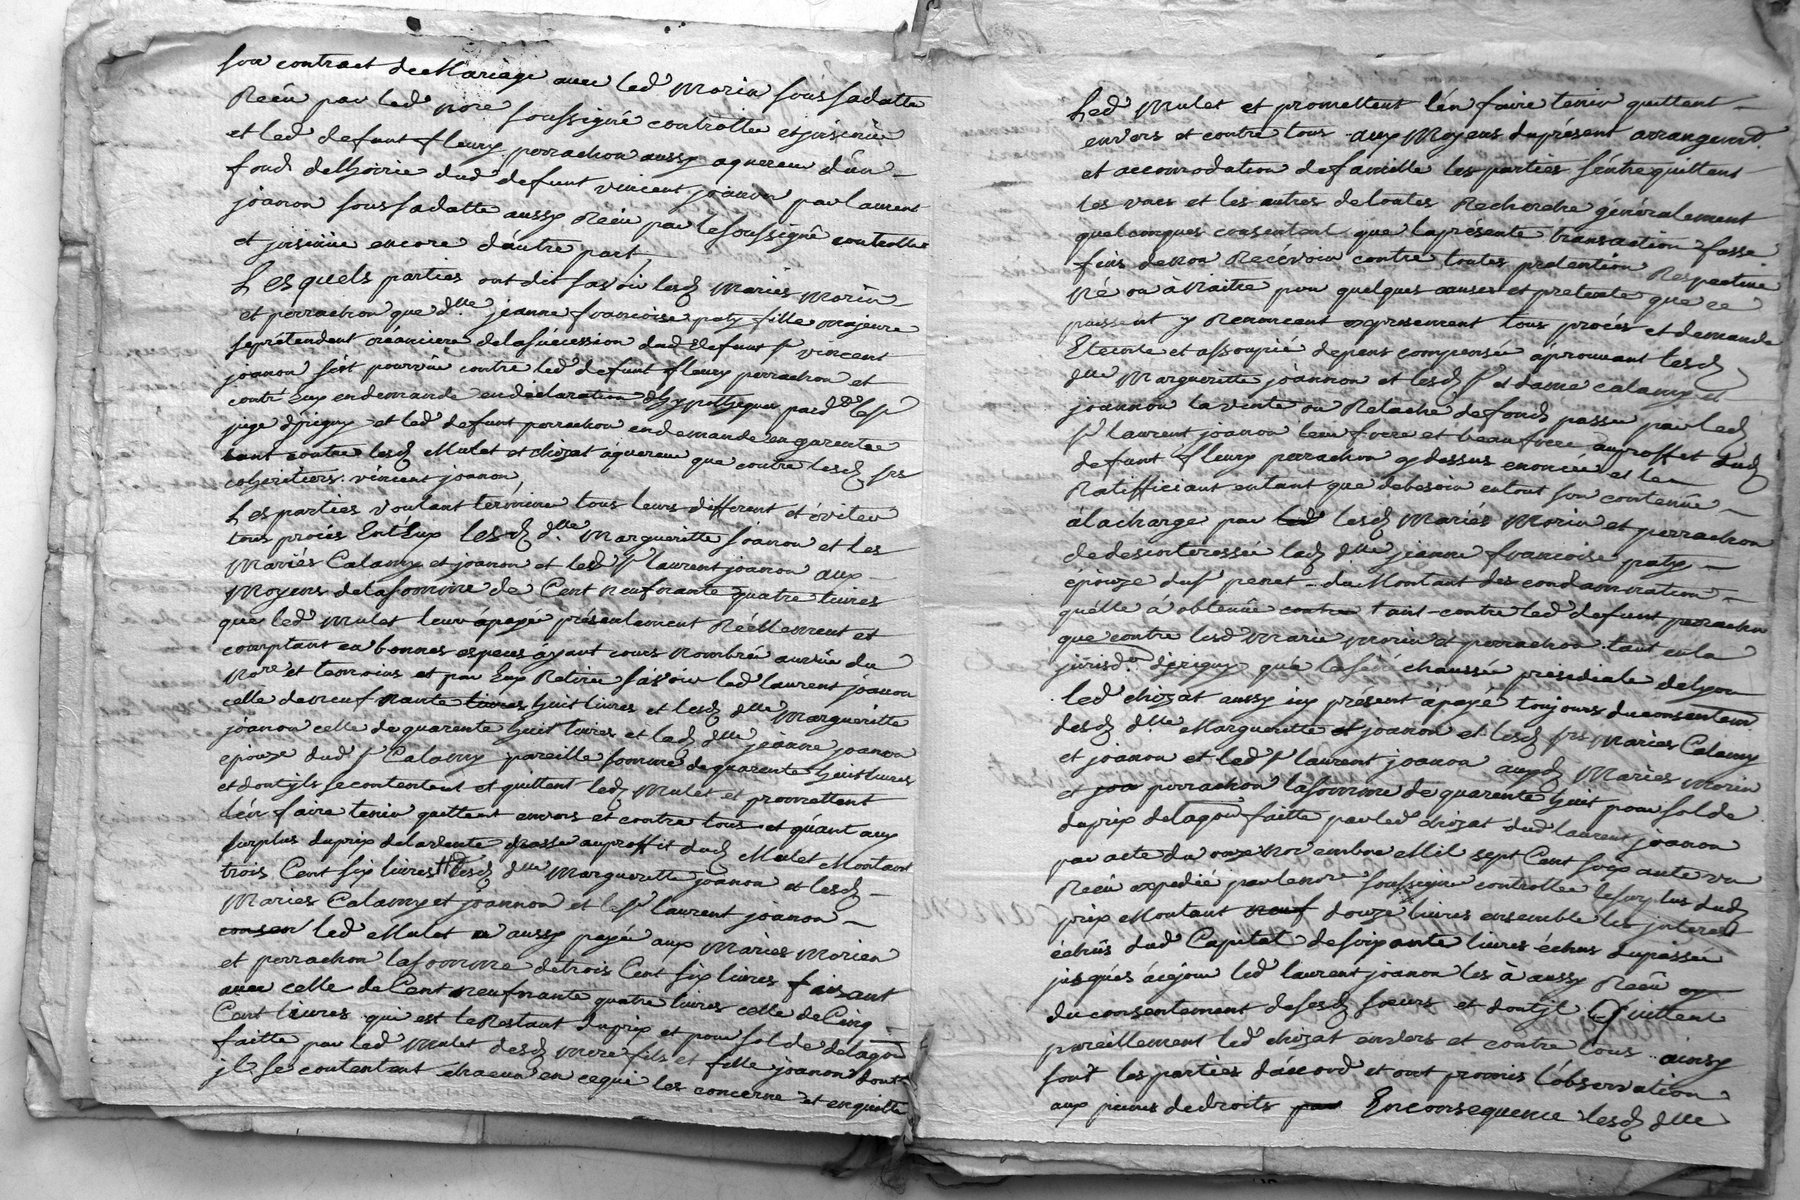 son contract de Mariage avec led Morin sous sa datte
Recu par led nore soussigné controllé et jnsinüé
et led defunt fleury perrachon aussy aquereur d'un
fond de lhoirie dud defunt vincent joanon par laurent
joanon sous sa datte aussy Recu par le soussigné controllé
et jnsinüé encore d'autre part
Lesquels parties ont dit savoir lesd Mariés Morin
et perrachon que dlle jeanne francoise paty fille majeure
se prétendent créanciere de la sucession dud defunt sr vincent
joanon s'est pourvüe contre led defunt fleury perrachon et
contr'Eux en demande en déclaration d'hypotheque pard le sr
juge d'jrigny et led defunt perrachon en demande en garentie
tant contre lesd Mulet et chozat aquereur que contre lesd srs
coheritiers vincent joanon
Les parties voulant terminer tous leurs different et éviter
tous procés Ent'Eux lesd dlle Margueritte joanon et les
Mariés Calamy et joanon et led sr laurent joanon aux
Moyens de la somme de Cent neufnante quatre livres
que led Mulet leur á payé présentement Réellement et
comptant en bonnes especes ayant cours nombrée au vüe du
Nore et temoins et par Eux Retirée savoir led laurent joanon
celle de neufnante livres huit livres et lesd dlle Margueritte
joanon celle de quarente huit livres et lad dlle jeanne joanon
epouze dud sr Calamy pareille somme de quarente huit livres
et dont jls se contentent et quittent led Mulet et promettent
l'én faire tenir quittent envers et contre tous et quánt aux
surplus du prix de la vente passé au proffit dud Mulet Montant
trois Cent six livres lesd dlle Margueritte joanon et lesd
Mariés Calamy et joannon et le sr laurent joanon
consen led Mulet a aussy payé aux Mariés Morien
et perrachon la somme de trois Cent six livres faisant
avec celle de Cent neufnante quatre livres celle de Cinq
Cent livres qui est le Restant du prix et pour solde de
faitte par led Mulet desd mere fils et fille joanon dont
jls se contentent chacun en ce qui les concerne et en quitte
Led Mulet et promettent l'én faire tenir quittent
envers et contre tous aux Moyens du présent arrangemt
et accomodation de famille les parties s'éntrequittent
les unes et les autres de toutes Recherche généralement
quelconques consentent que la presente transaction fasse
fins de non Recevoir contre toutes pretention Respective
Né ou à Naître pour quelques causes et pretexte que ce
puissent y Renoncent expresement tous procés et demande
Eteinte et assoupié depens compensée áprouvant lesd
dlle Margueritte joannon et lesd sr et dame calamy et
joannon la vente ou Relache de fond passée par led
sr laurent joanon leur frere et beaufrere au proff et dud
defunt fleury perrachon cy dessus enoncée et le
Ratifficiant entant que de besoin en tout son contenüe
á la charge par led lesd Mariés Morin et perrachon
de desinteressée lad dlle jeanne francoise paty
épouze du sr penet du Montant des condamnation
qu'élle á obtenüe contre tant contre led defunt perrachon
que contre lesd Marie Morin et perrachon tant en la
jurisdon d'jrigny que la senéchaussée presidiale de lyon
led chozat aussy icy présent á payé toujours du consentemt
desd dlle Margueritte et joanon et lesd srs Mariés Calamy
et joanon et led sr laurent joanon auxd Mariés Morin
et joa perrachon la somme de quarente huit pour solde
du prix de faitte par led chozat dud laurent joanon
par acte du onze Novembre Mil sept Cent soixante un
Recu expedié par le nore soussigné controllée le surplus dud
prix Montant neuf douze livres ensemble les jnterest
échüs dud Capital de soixante livres échus du passée
jusques á ce jour led laurent joanon les à aussy Recu
du consentement de sesd sœurs et dont jl Quittent
pareillement led chozat envers et contre tous ainsy
sont les parties d'acord et ont promis l'observation
aux peines de droits par En consequence lesd dlle